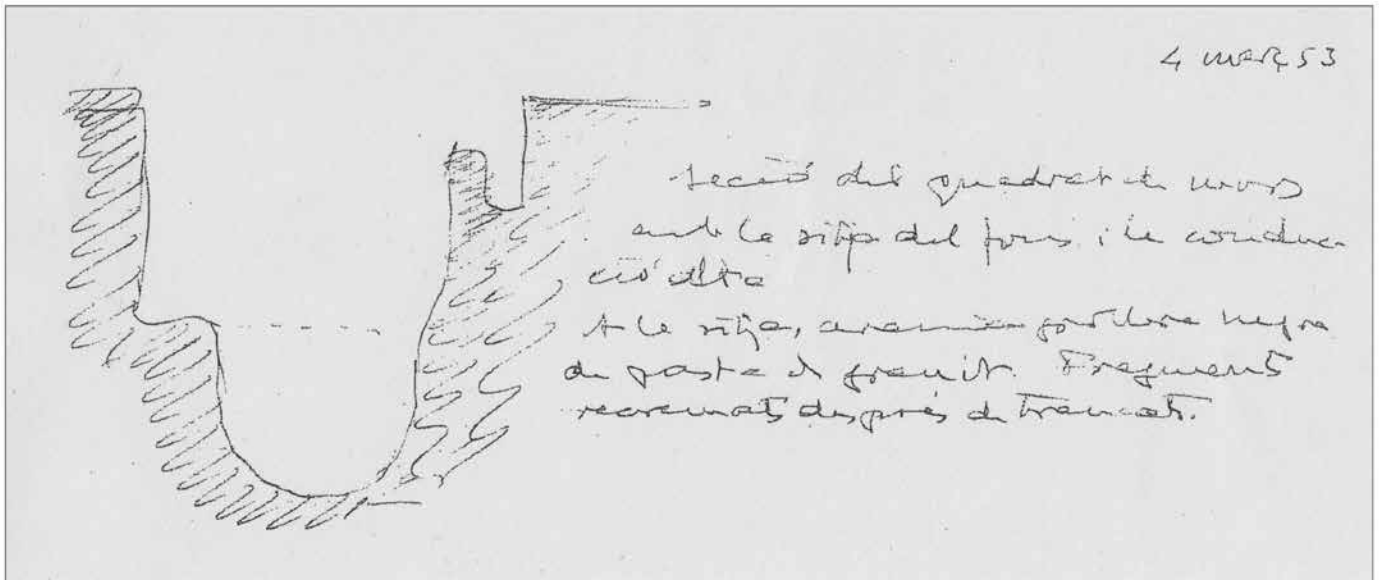 4 març 53
Secció del quadrat de murs
amb la sitja del fons i la conduc-
ció alta
A la sitja, ceramica grollera negra
de pasta de granit. Fragments
recremats després de trencats.